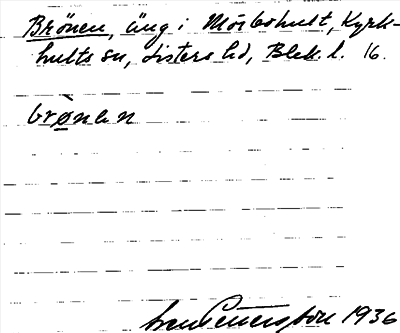 Brönen, äng i Mörbshult, Kyrk-
hults sn, Listers hd, Blek. l. 16.
brø̀nen
1936